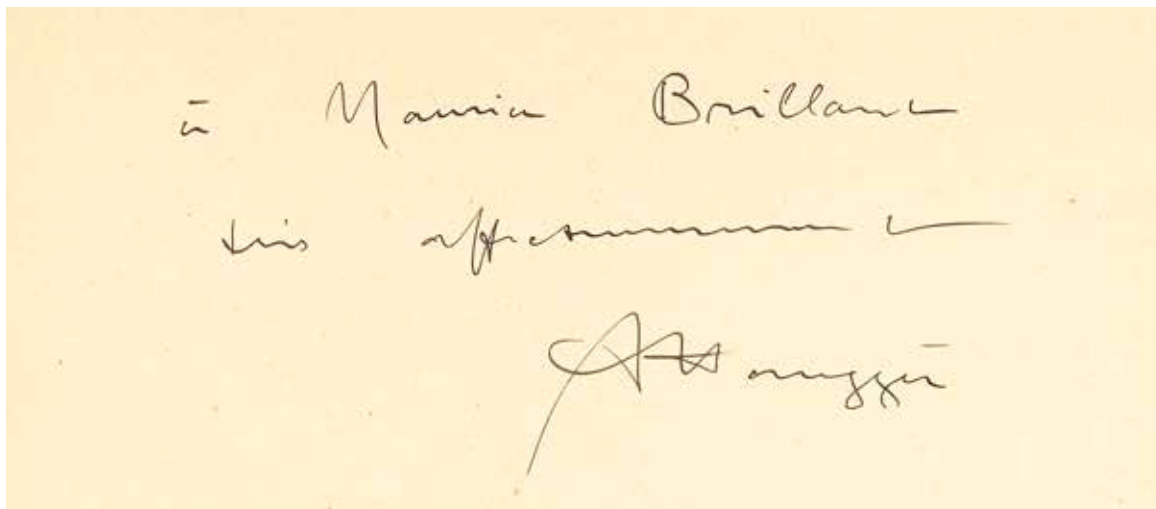 à Maurice Brillant
très affectueusement
AHonegger